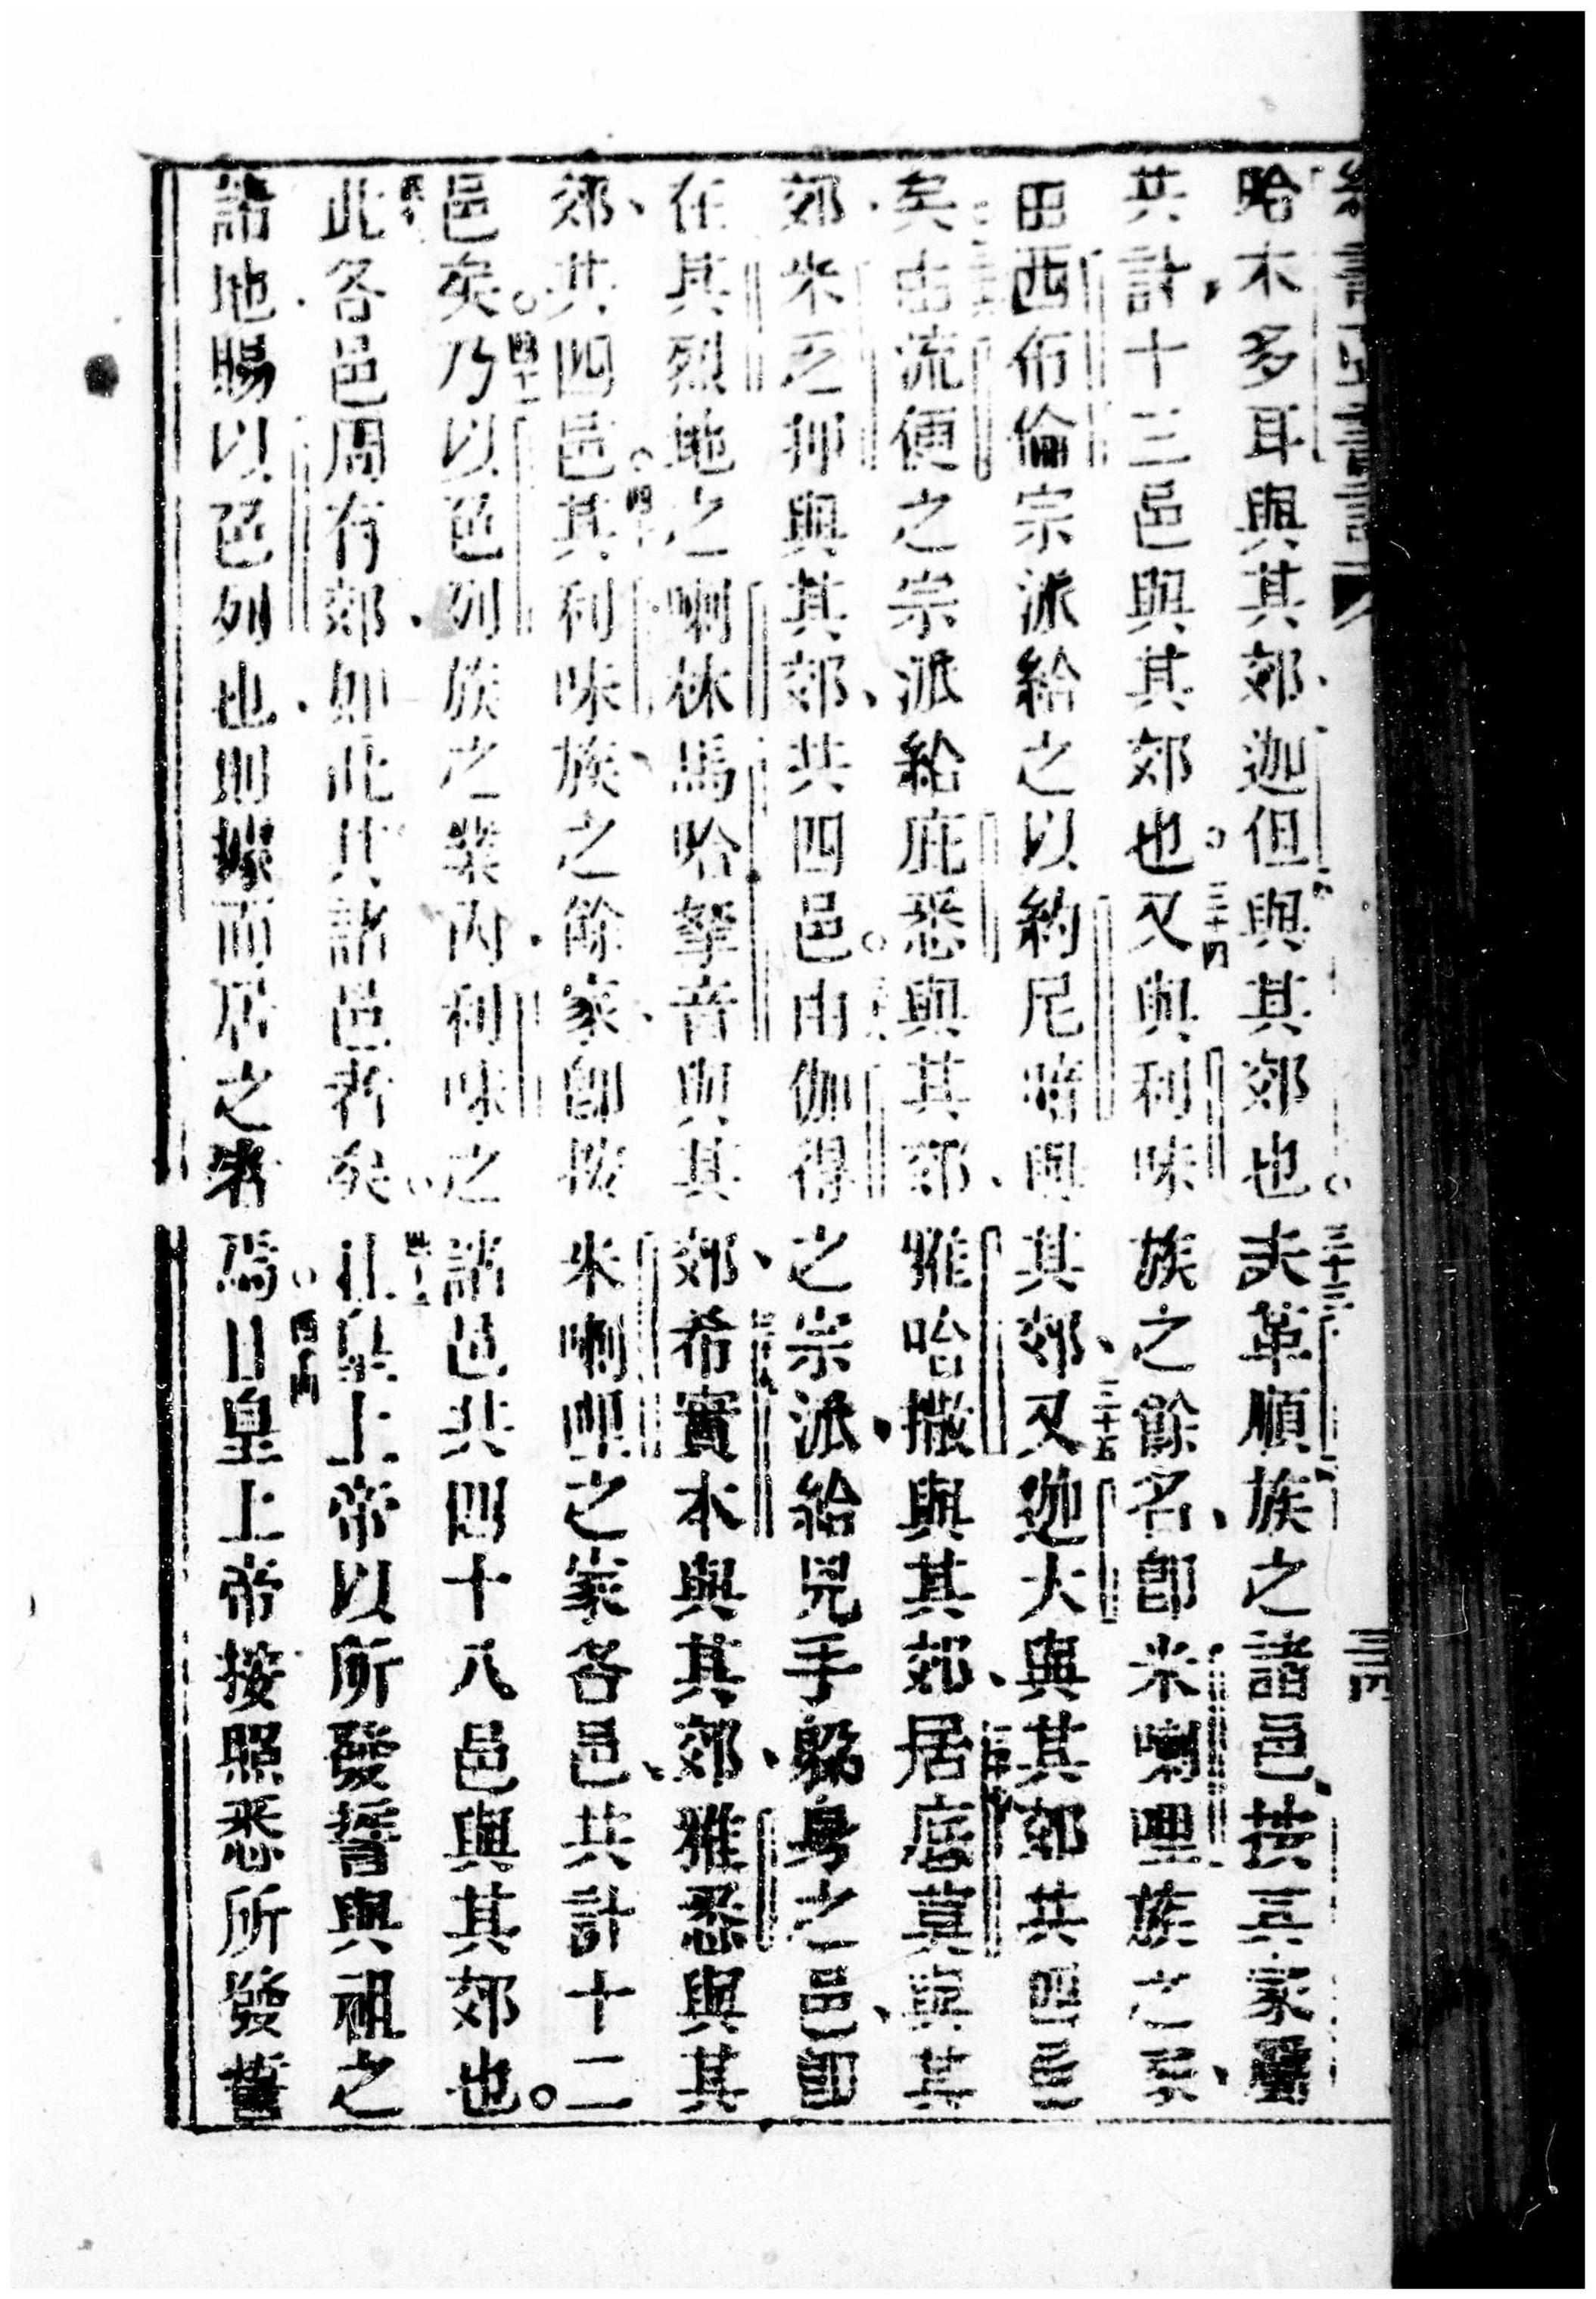 哈木多耳與其郊、迦但與其郊也。三十三夫革順族之諸邑、按其家
共計、十三邑與其郊也。三十四又與利味族之餘名、即米喇哩族之家、
由西布倫宗派給之以約尼暗與其郊、三十五又迦大與其郊共四邑
矣。由流便之宗派給庇悉與其郊、雅哈撒與其郊、居底莫與其
郊、米乏押與其郊、共四邑。由伽得之宗派、給兇手躲身之邑、即
在其烈地之喇抹、馬哈拏音與其郊、希實本與其郊、雅悉與其
郊、共四邑。四十其利味族、之餘家、即按米喇哩之家各邑、共計十二
邑矣。四十一乃以色列族之業內、利味之諸邑共四十八邑與其郊也。
此各邑周有郊、如此其諸邑者矣。四十三且皇上帝以所發誓與祖之
諸地、賜以色列也、則據而居之者焉。四十四且皇上帝按照悉所發誓